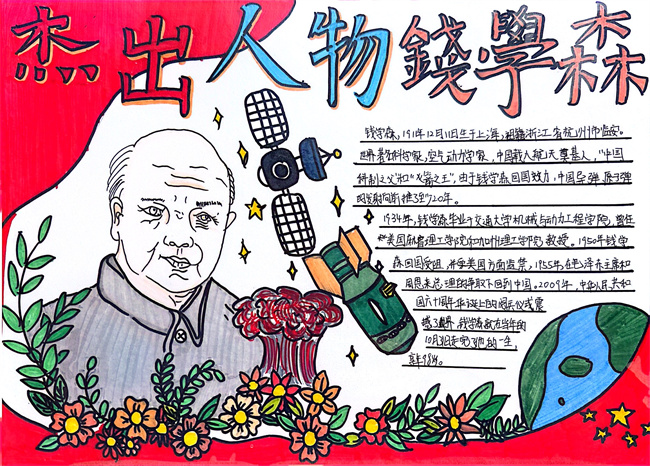 杰出人物錢學森
钱学森,1911年12月11日生于上海,祖籍浙江省杭州市临安。
世界著名科学家,空气动力学家,中国载人航天奠基人,"中国
科制之父"和"火箭之王",由于钱学森回国效力,中国导弹原子弹
的发射向前推了至少20年。
1934年,钱学森毕业于交通大学机械与动力工程学院,曾任
美国麻省理工学院和加州理工学院教授。1950年钱学
森回国受阻,并受美国方面监禁,1955年,在毛泽东主席和
周恩来总理的争取下回到中国。2009年,中华人民共和
国六十周年华诞上的阅兵仪式震
撼了世界,钱学森教在当年的
10月31日走完了他的一生,
享年98岁。